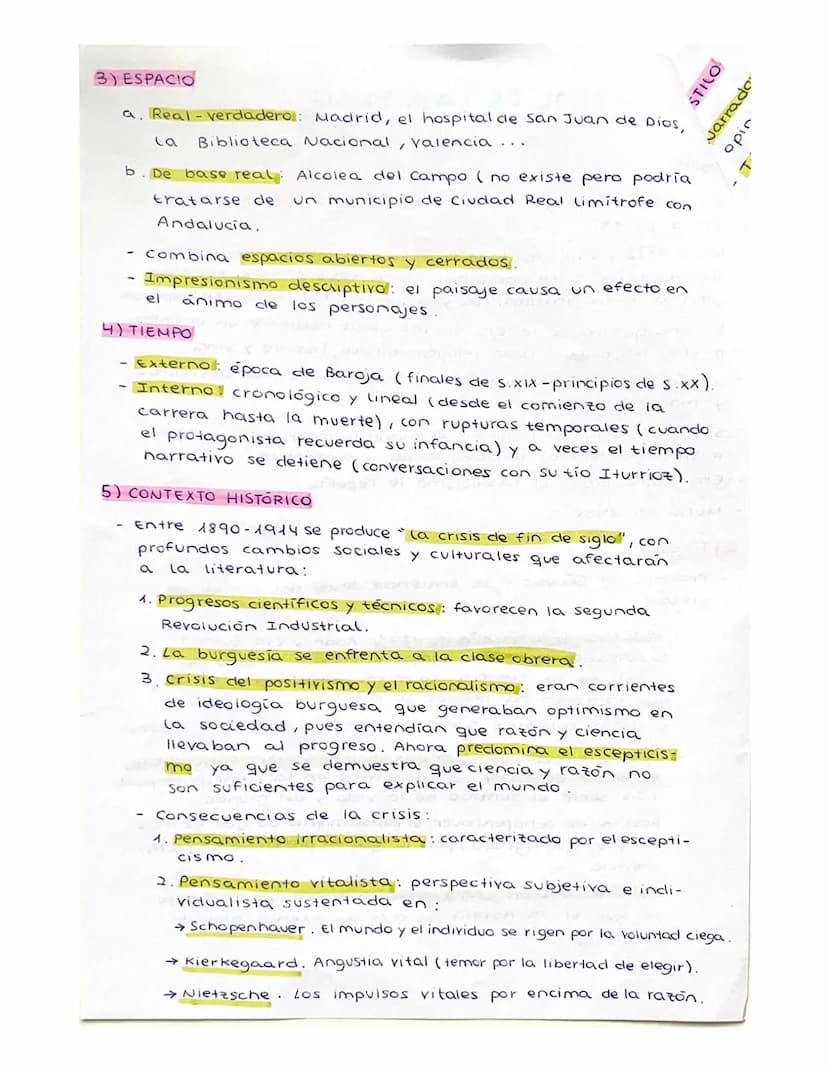 3) ESPACIO
a. Real-verdadero: Madrid, el hospital de San Juan de Dios,
la Biblioteca Nacional, Valencia ...
b. De base real: Alcolea del Campo (no existe pero podría
tratarse de un municipio de Ciudad Real limítrofe con
Andalucía.
- Combina espacios abiertos y cerrados.
- Impresionismo descriptivo: el paisaje causa un efecto en
el ánimo de los personajes.
4) TIEMPO
- Externo: época de Baroja (finales de s.XIX-principios de s.XX).
- Interno: cronológico y lineal (desde el comienzo de la
carrera hasta la muerte), con rupturas temporales (cuando
el protagonista recuerda su infancia) y a veces el tiempo
narrativo se detiene (conversaciones con su tío Iturrioz).
5) CONTEXTO HISTÓRICO
- Entre 1890-1914 se produce "la crisis de fin de siglo", con
profundos cambios sociales y culturales que afectarán
a la literatura:
1. Progresos científicos y técnicos: favorecen la segunda
Revolución Industrial.
2. La burguesía se enfrenta a la clase obrera.
3. Crisis del positivismo y el racionalismo: eran corrientes
de ideología burguesa que generaban optimismo en
la sociedad, pues entendían que razón y ciencia
llevaban al progreso. Ahora predomina el escepticis-
mo ya que se demuestra que ciencia y razón no
son suficientes para explicar el mundo.
- Consecuencias de la crisis:
1. Pensamiento irracionalista: caracterizado por el escepti-
cismo.
2. Pensamiento vitalista: perspectiva subjetiva e indi-
vidualista sustentada en:
→ Schopenhauer. El mundo y el individuo se rigen por la voluntad ciega.
→ Kierkegaard. Angustia vital (temor por la libertad de elegir).
→ Nietzsche. Los impulsos vitales por encima de la razón.
STILO
Narrado
opin
- T